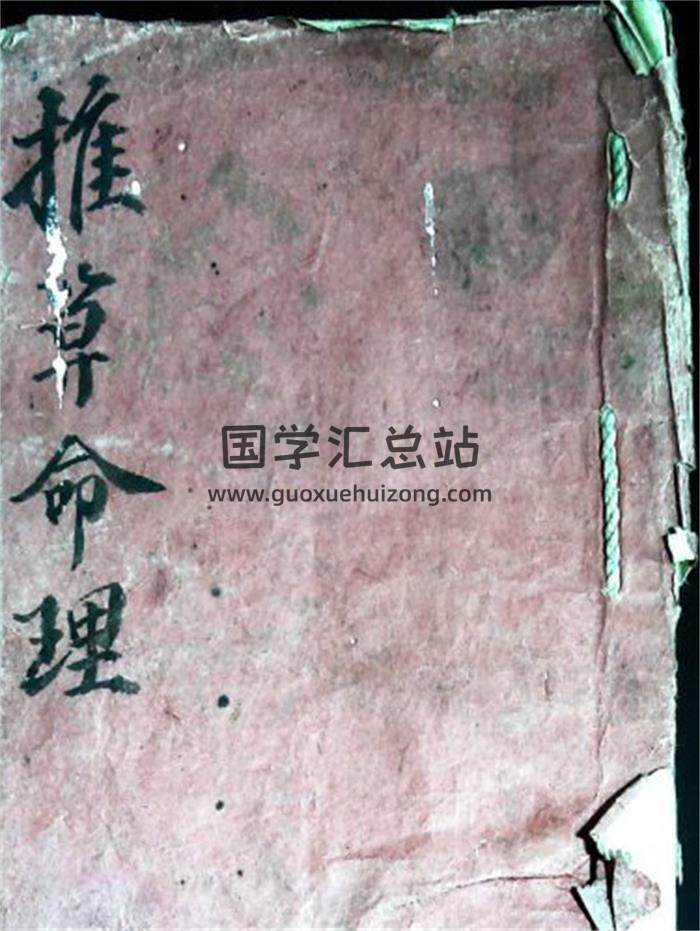 推算命理
国学汇总站
www.guoxuehuizong.com